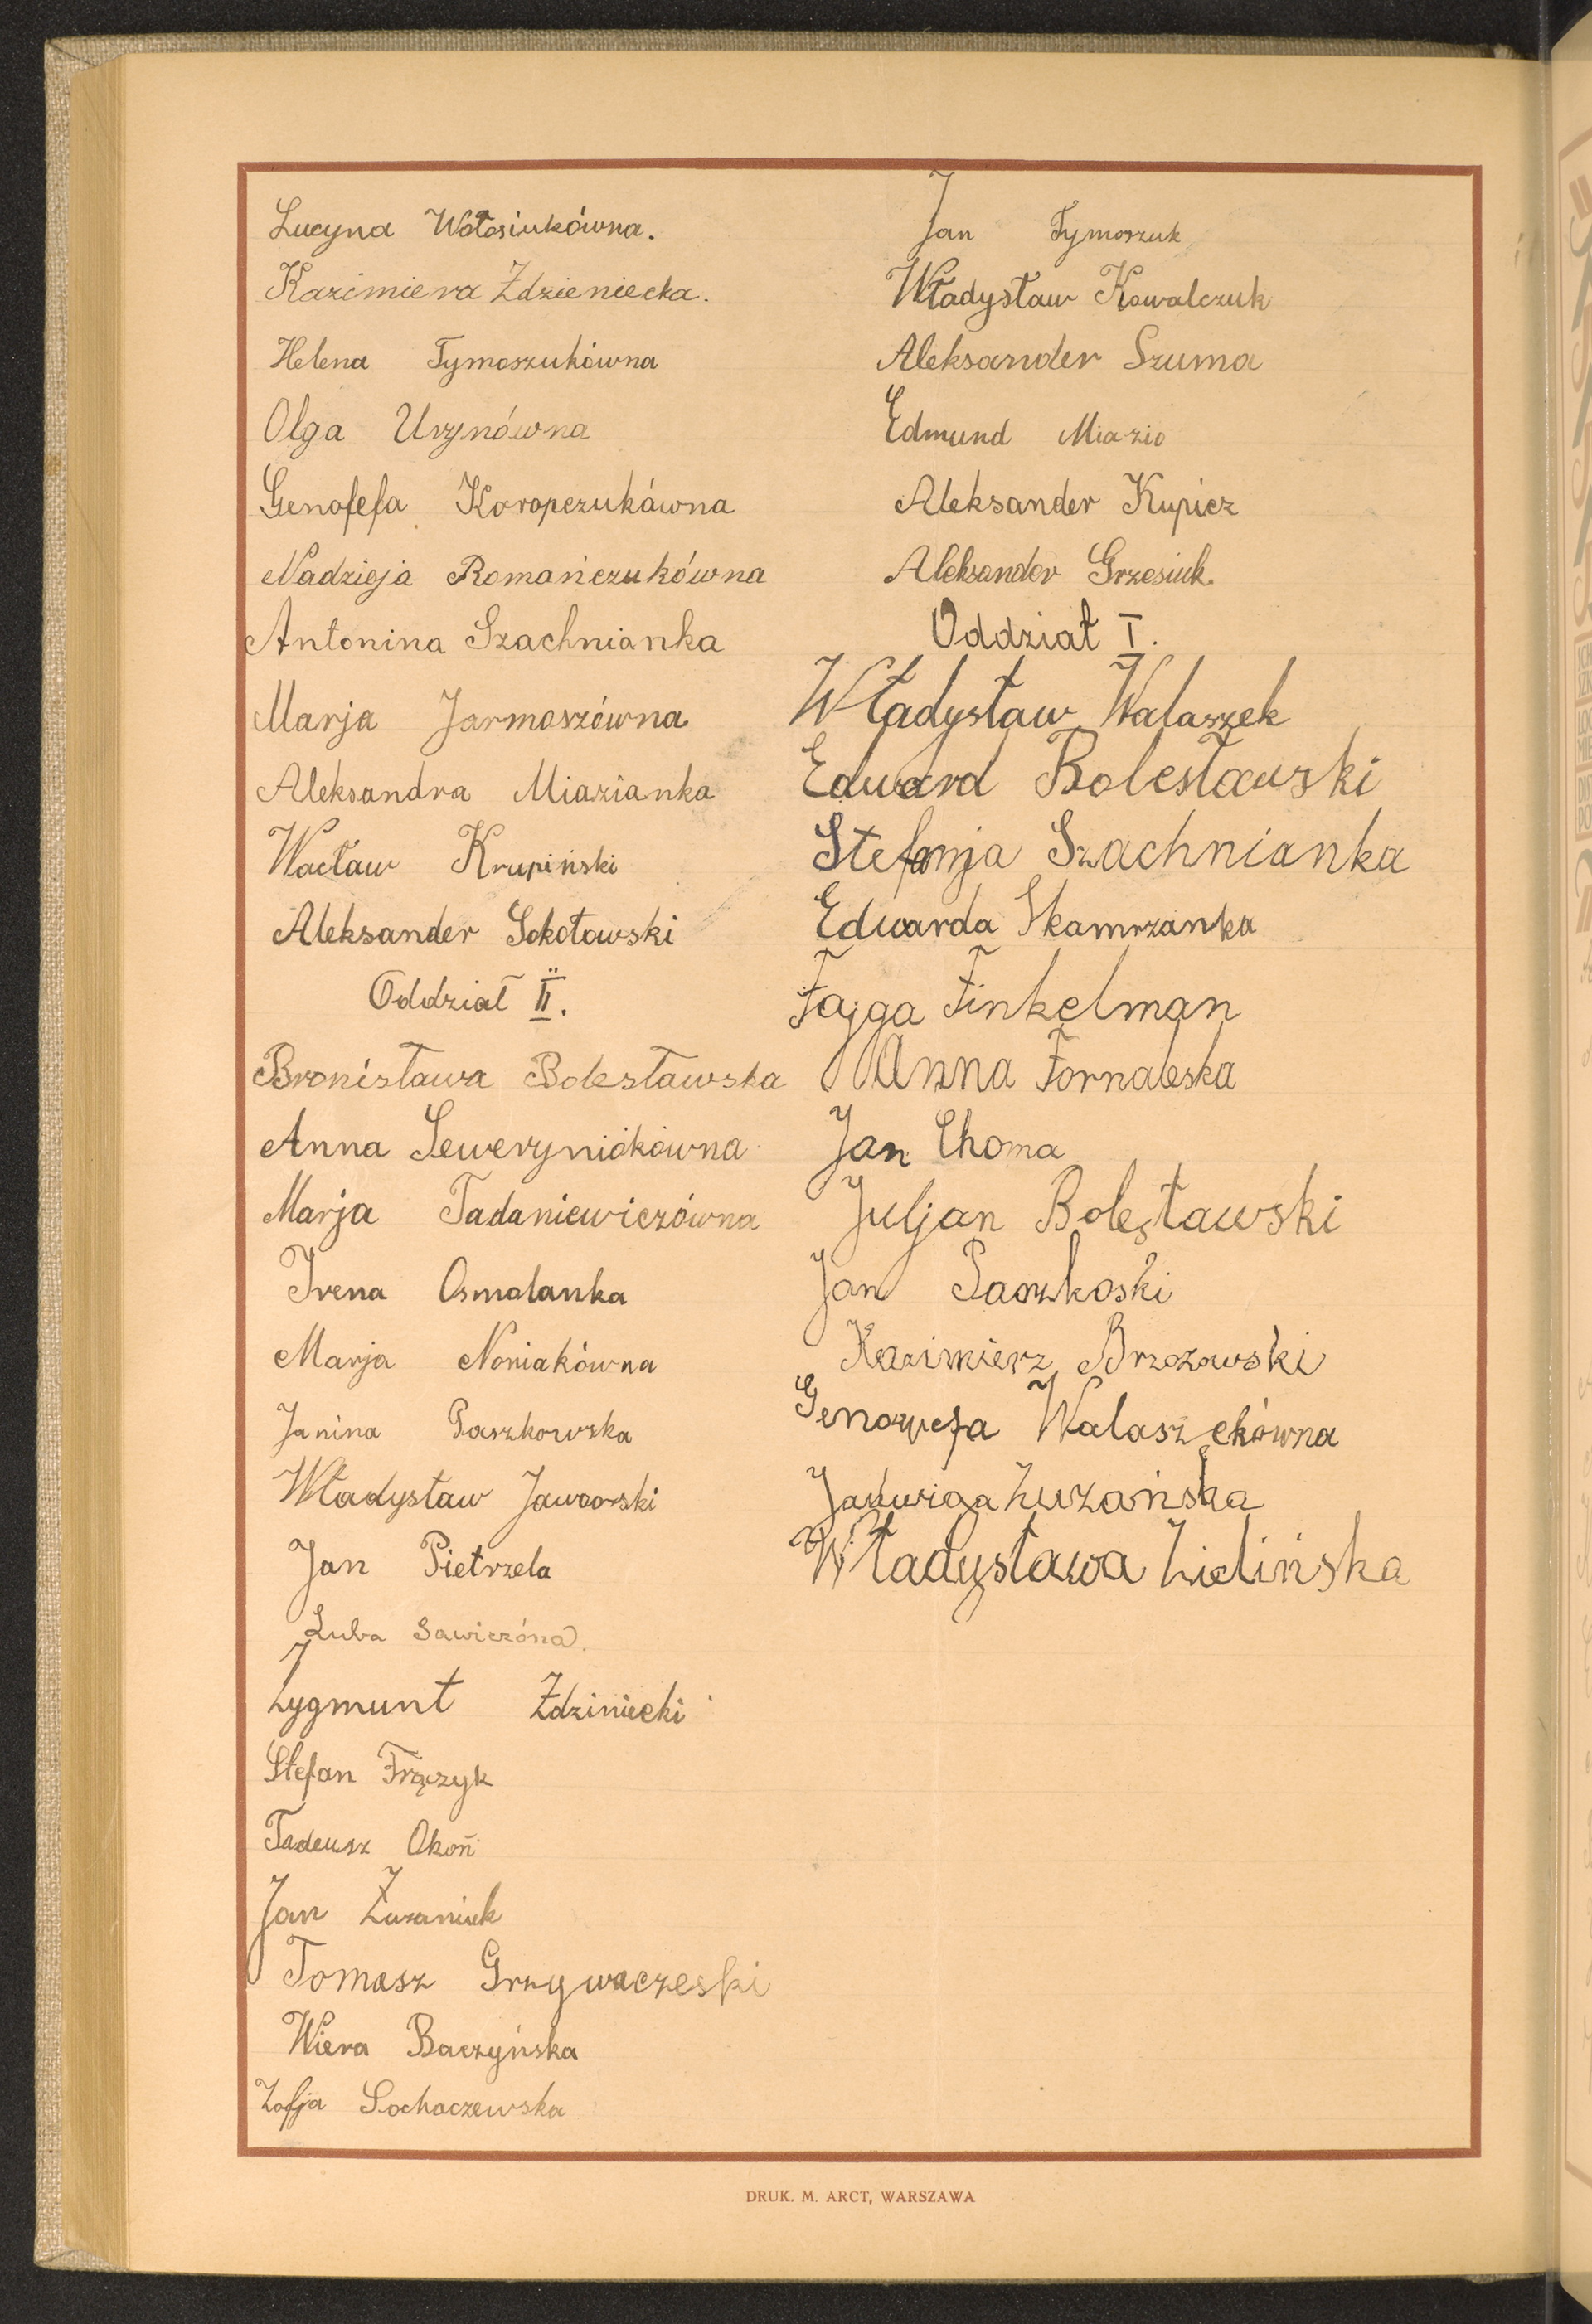 Lucyna Wołosiukówna.
Kazimiera Zdzieniecka.
Helena Tymoszukówna
Olga Urynówna
Genofefa Koropczukówna
Nadzieja Romańczukówna
Antonina Szachnianka
Marja Jarmoszówna
Aleksandra Miazianka
Wacław Krupiński
Aleksander Sokołowski
Oddział II.
Bronisława Bolesławska
Anna Seweryniókówna
Marja Tadaniewiczówna
Irena Osmolanka
Marja Noniakówna
Janina Paszkowska
Władysław Jaworski
Jan Pietrzela
Luba Sawiczóna.
Zygmunt Zdziniecki
Stefan Frączyk
Tadeusz Okoń
Jan Żuraniuk
Tomasz Grzywaczeski
Wiera Baczyńska
Zofja Sochaczewska
Jan Tymoszuk
Władysław Kowalczuk
Aleksander Szuma
Edmund Miazio
Aleksander Kupicz
Aleksander Grzesiuk.
Oddział I.
Władysław Walaszek
Edward Bolesławski
Stefanja Szachnianka
Edwarda Skamrzanka
Fajga Finkelman
Anna Fornaleska
Jan Choma
Juljan Bolesławski
Jan Paszkoski
Kazimierz Brzozowski
Genowefa Walaszekówna
Jadwiga Łuzańska
Władysława Zielińska
DRUK. M. ARCT, WARSZAWA